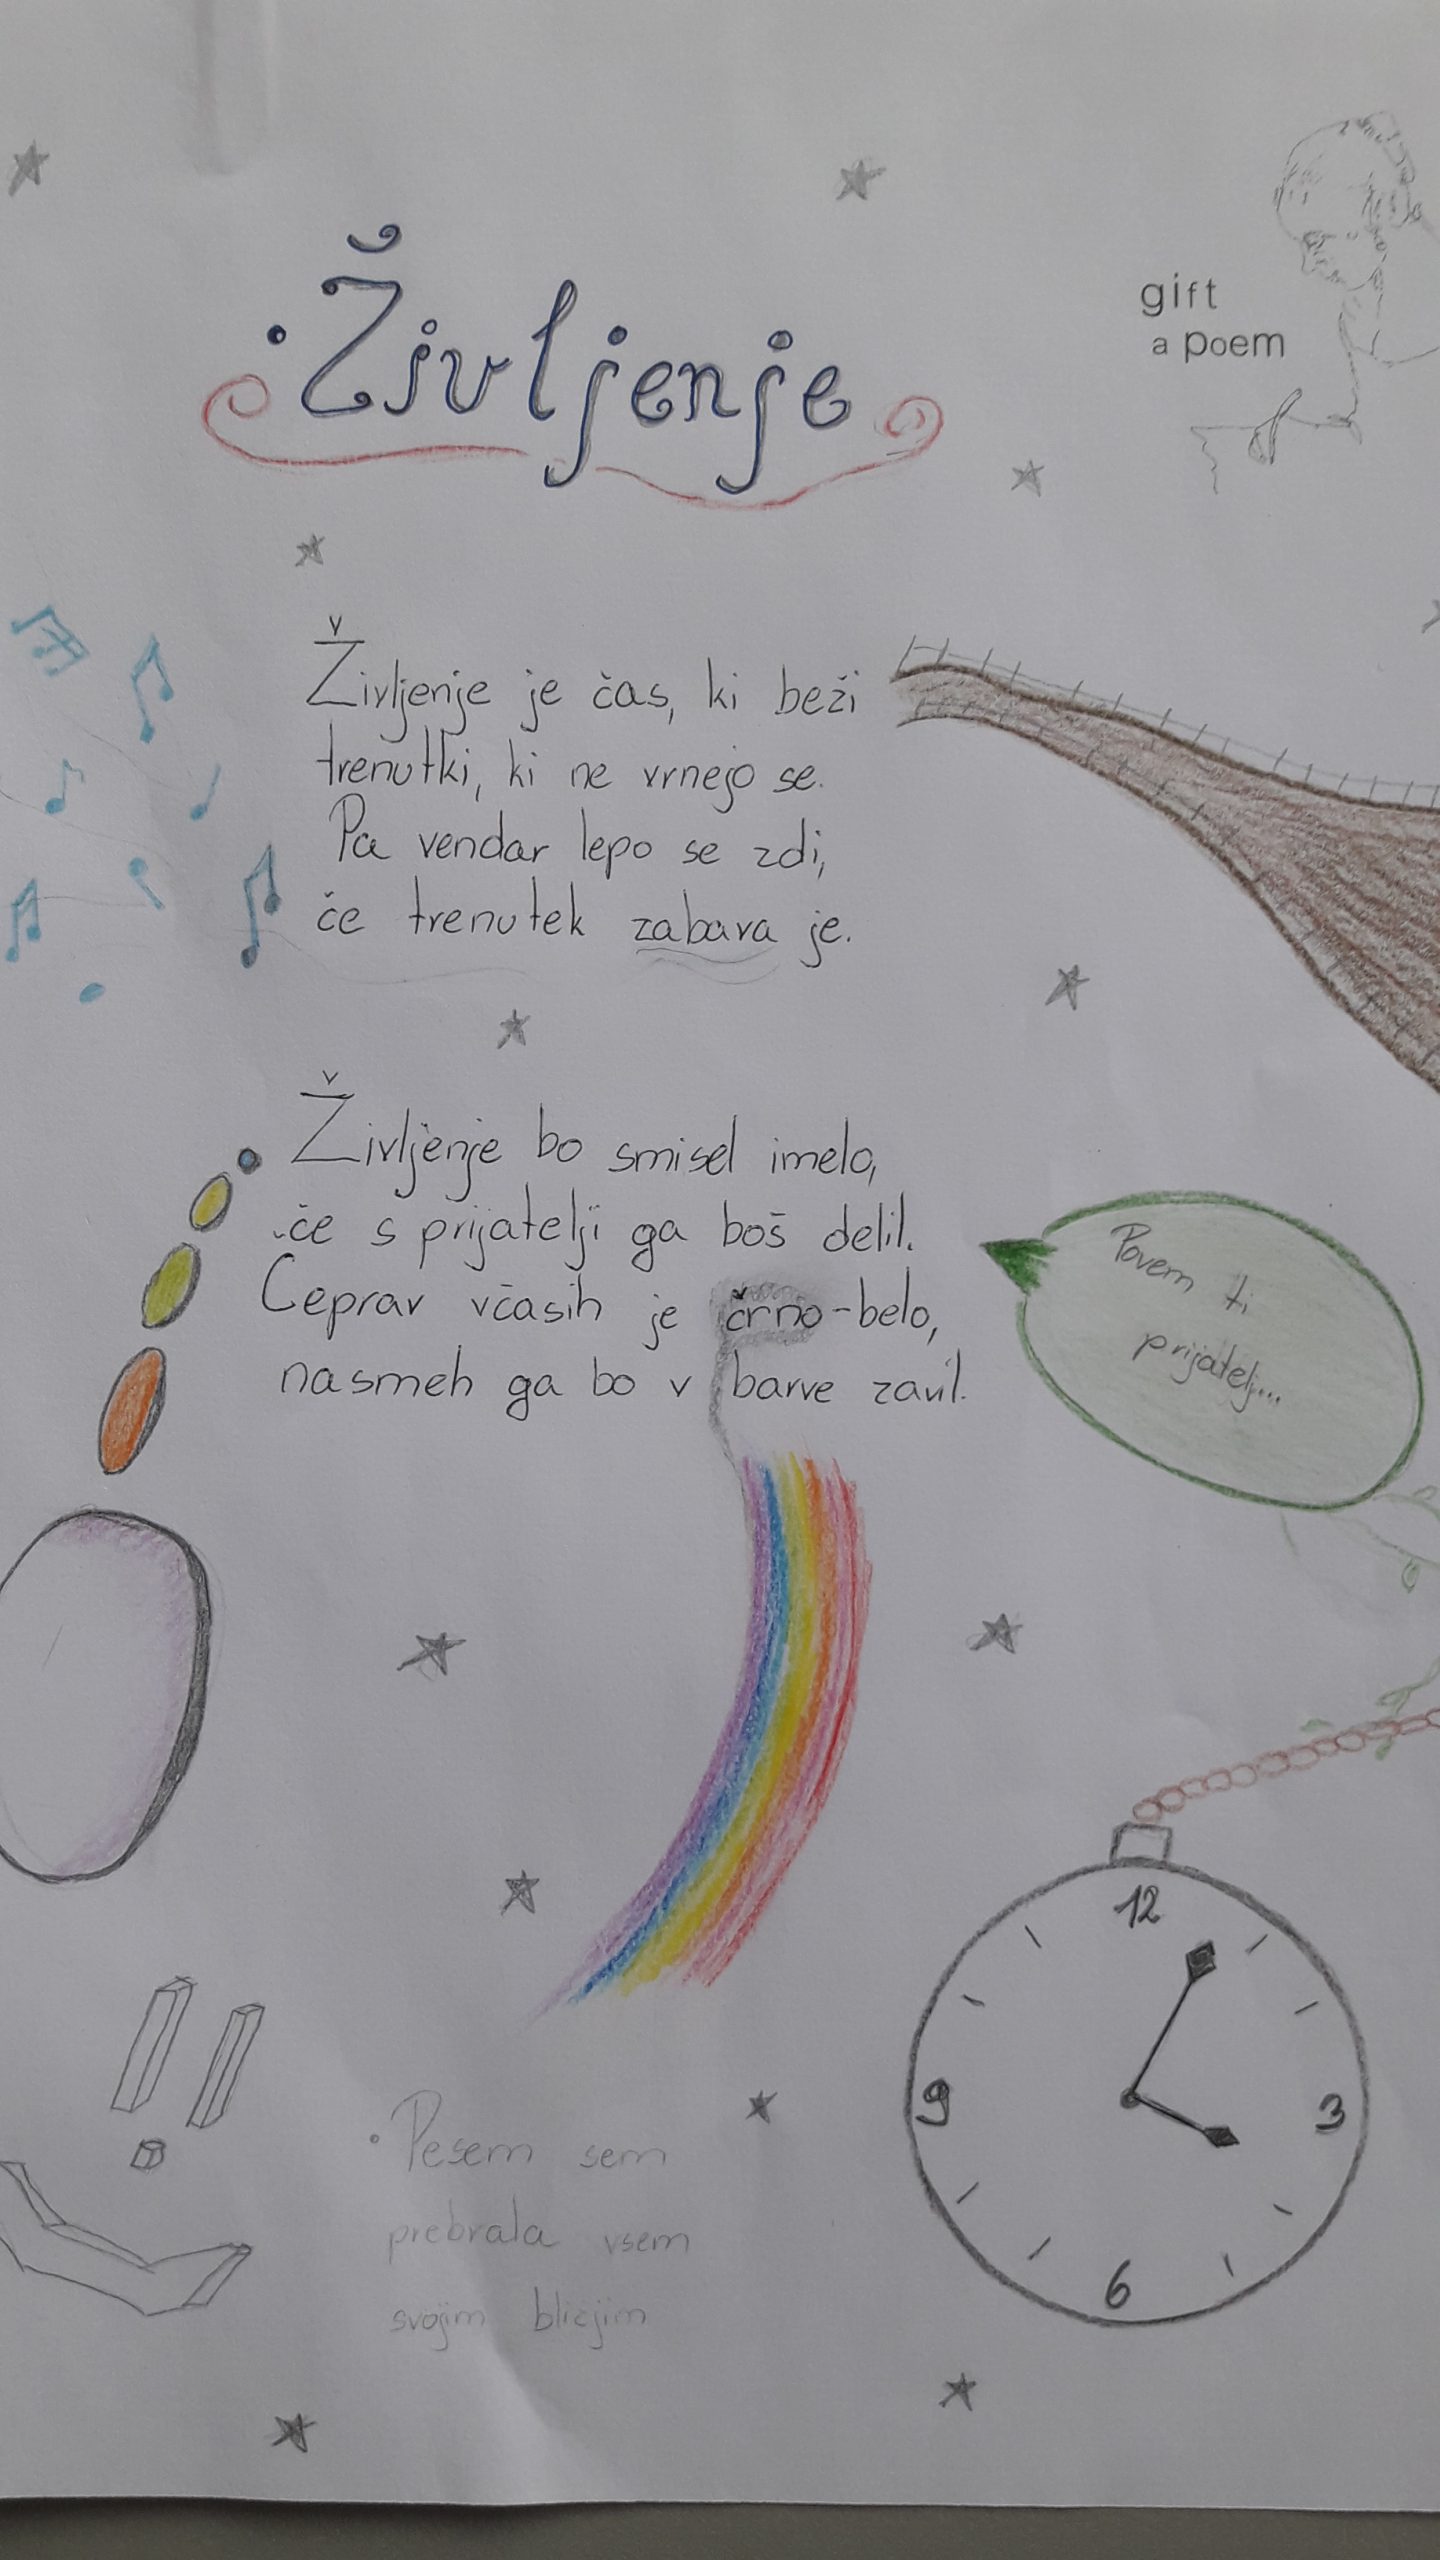 Življenje
gift
a poem
Življenje je čas, ki beži
trenutki, ki ne vrnejo se.
Pa vendar lepo se zdi,
če trenutek zabava je.
Življenje bo smisel imelo,
če s prijatelji ga boš delil.
Čeprav včasih je črno-belo,
nasmeh ga bo v barve zavil.
Povem ti
prijatelj...
12
9
3
6
Pesem sem
prebrala vsem
svojim bližjim